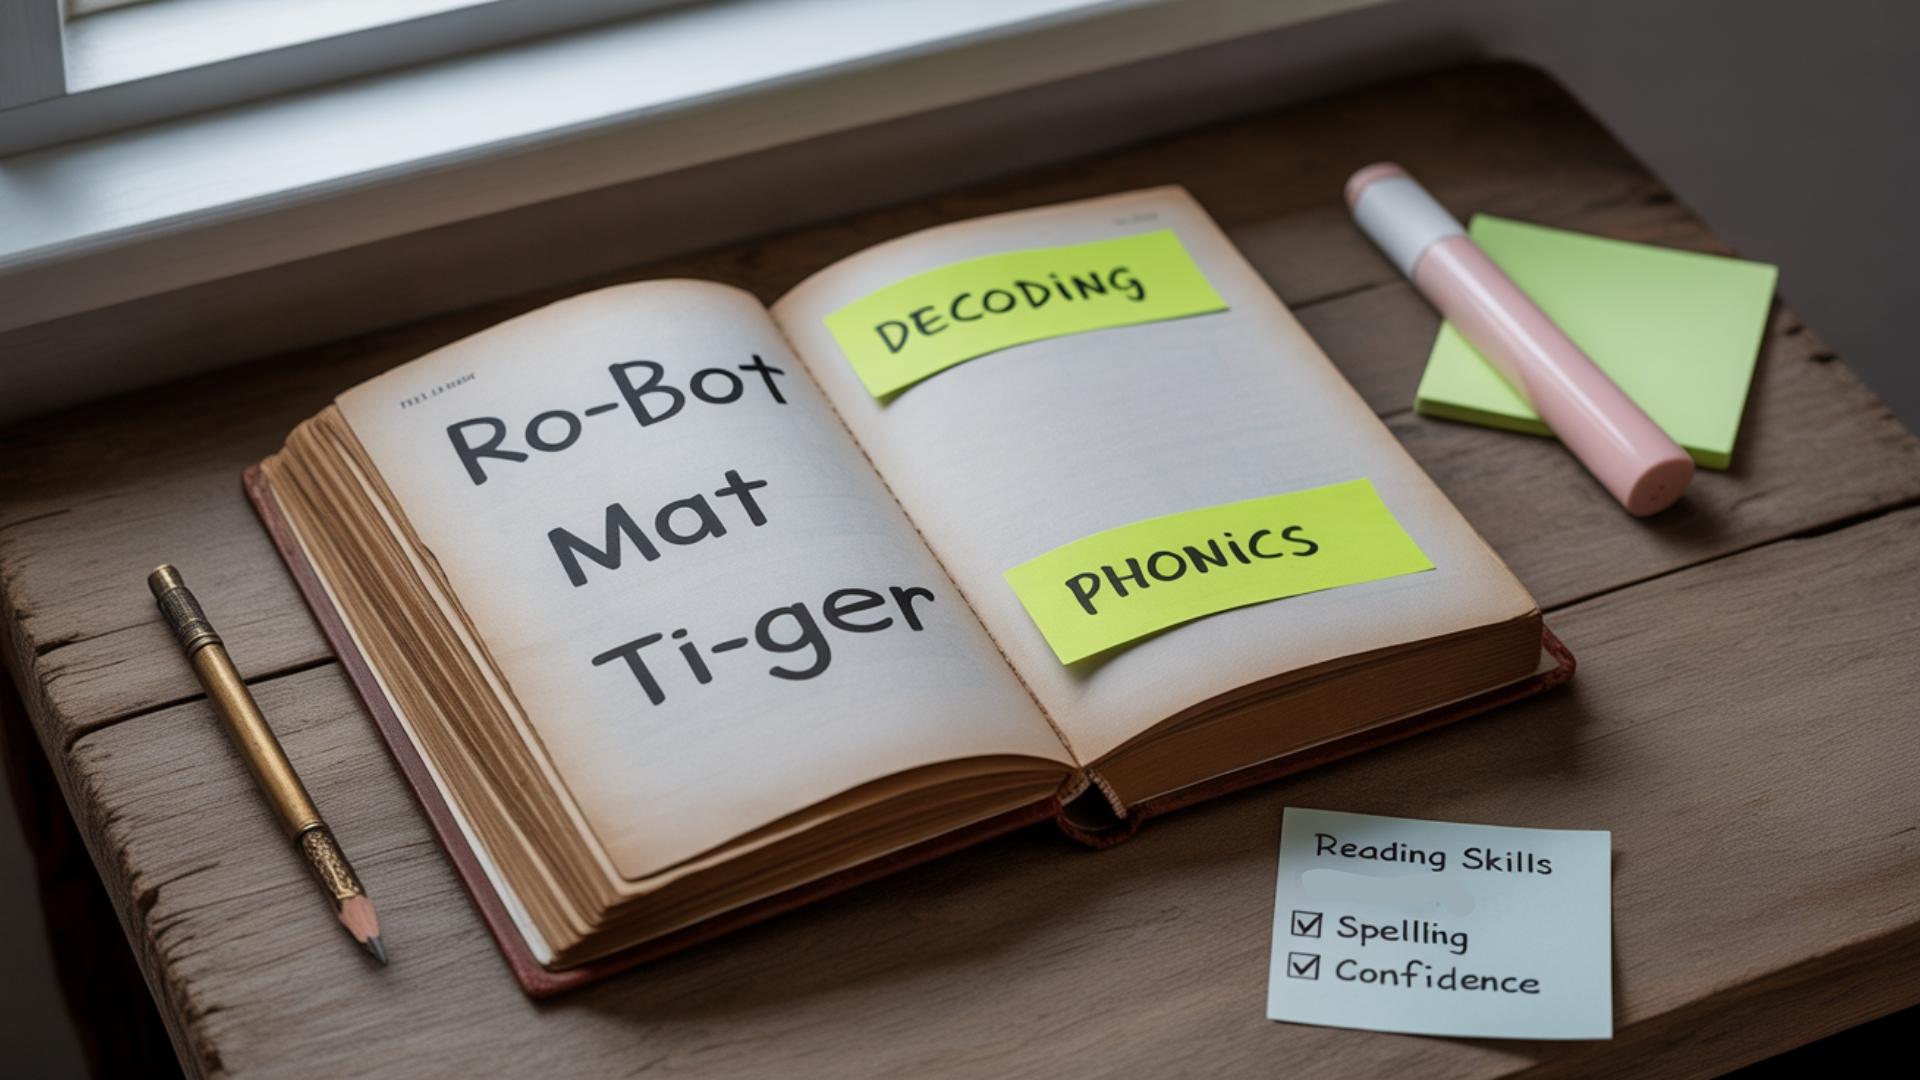 Ro-Bot
Mat
Ti-ger
DECODiNG
PHONiCS
Reading Skills
☑ Spellling
☑ Confidence